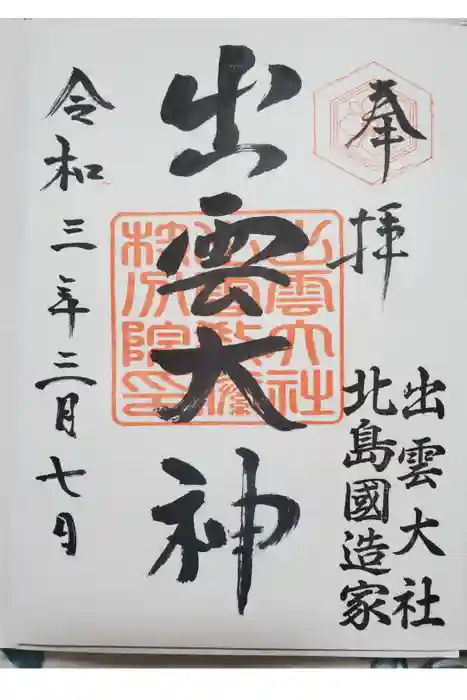 奉拝
出雲大社
北島國造家
出雲大神
令和三年三月七日
出雲大社